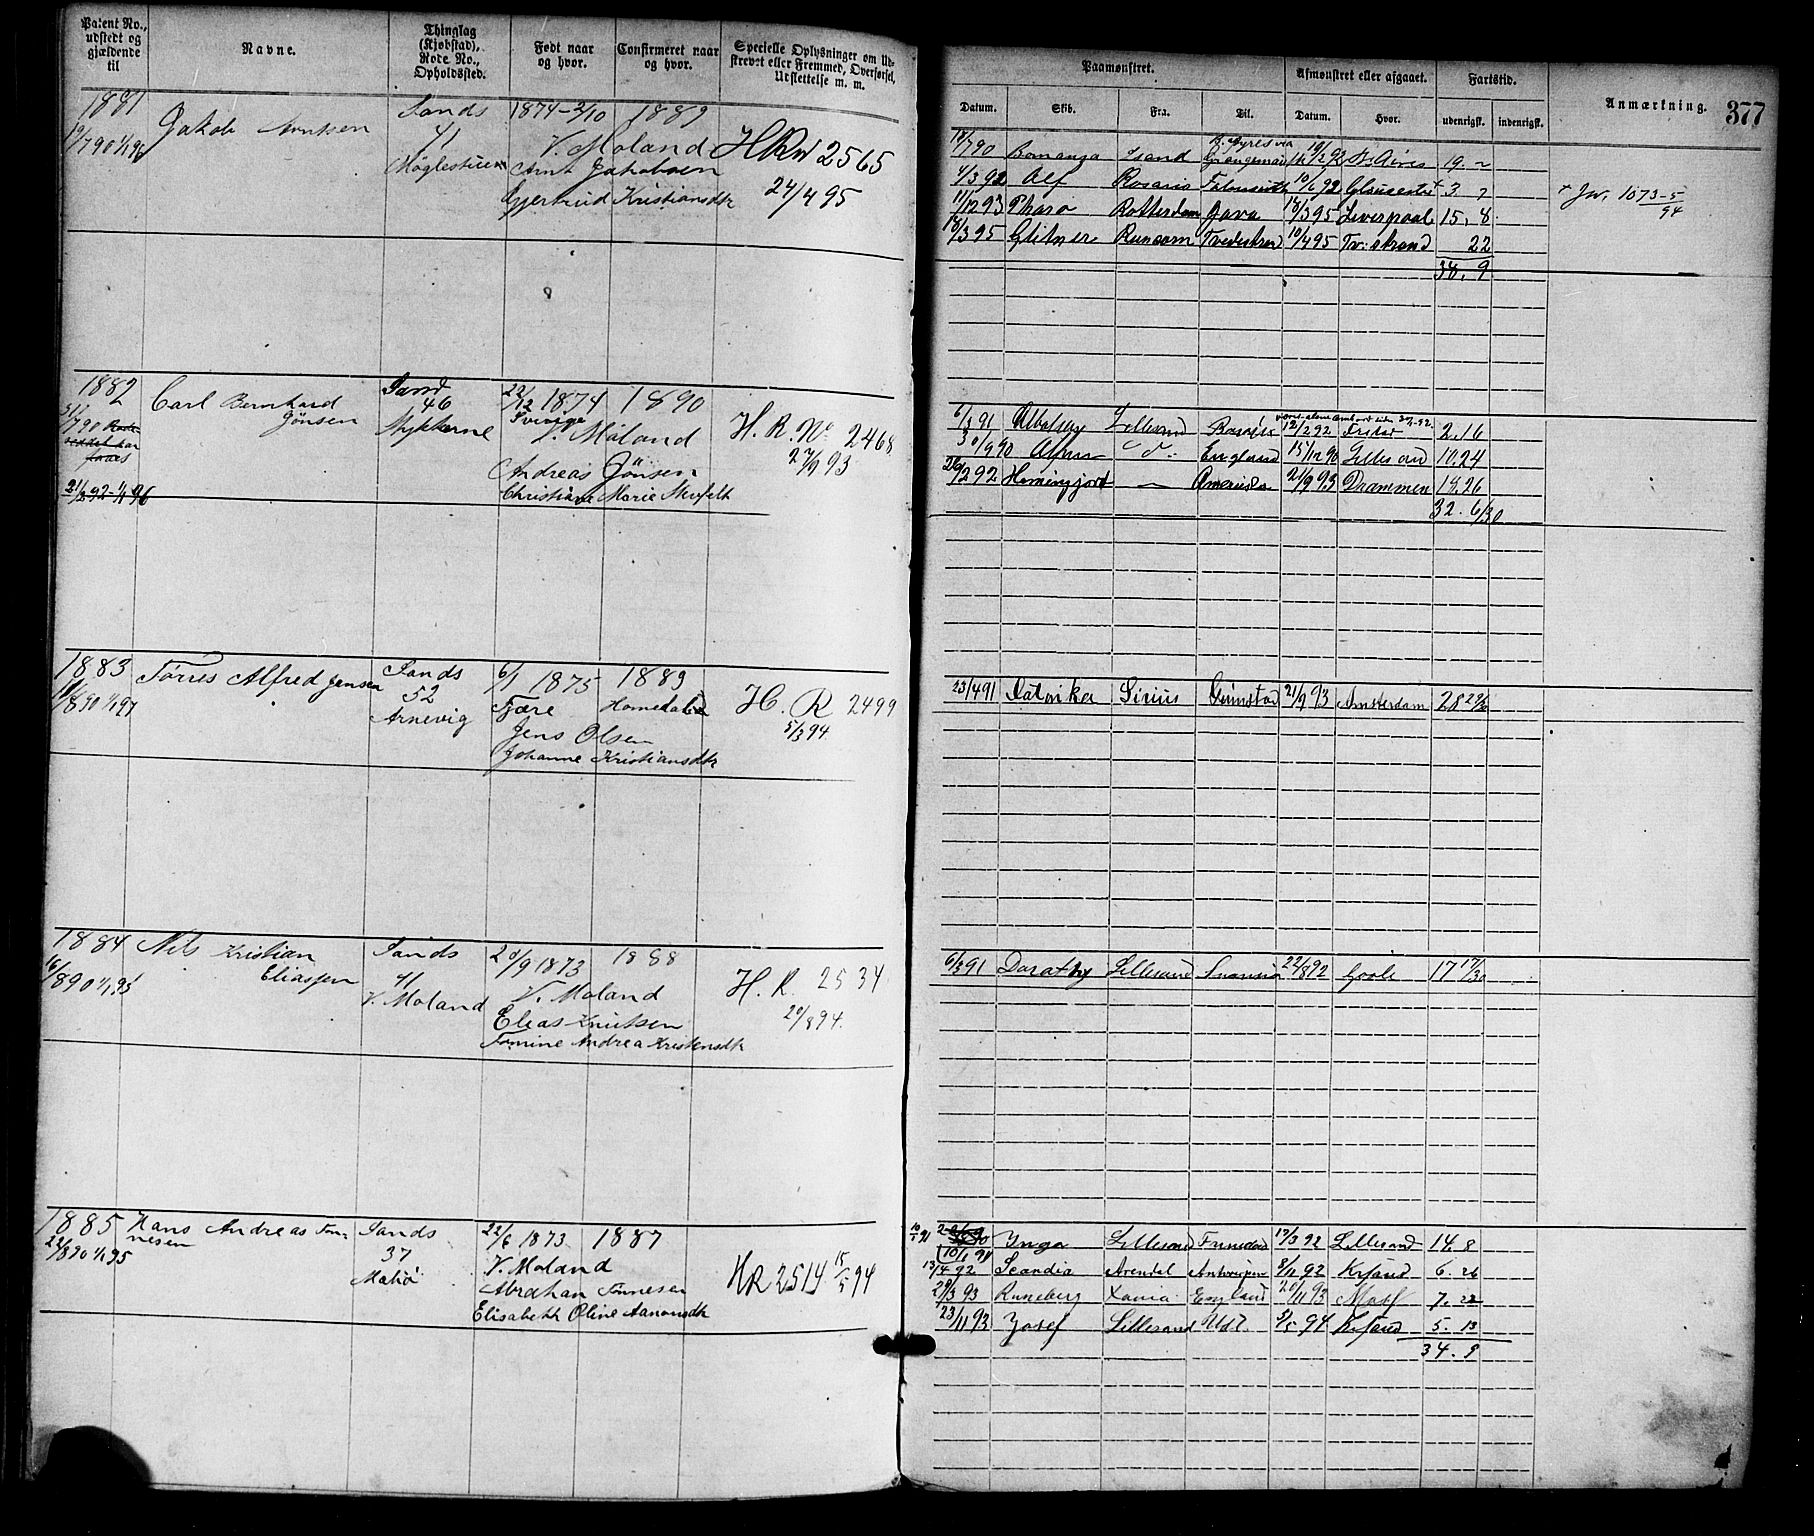 Patent No.,
udstedt og
gjældende
til
Navne.
Thinglag
(Kjøbstad),
Rode No.,
Opholdssted.
Født naar
og hvor.
Confirmeret naar
og hvor.
Specielle Oplysninger om Ud-
skrevet eller Fremmed, Overførsel,
Udslettelse m. m.
1881
19/7 90 1/1 96
Jakob Arntsen
Sands
41
Møglestuen
1874-2/10 1889
V. Moland
Arnt Jakobsen
Gjertrud Kristiansdtr
HRN 2565
24/4 95
1882
31/7 90
21/3 92-1/1 96
Carl Bernhard
Jönsen
Sand
46
22/12 1874 1890
Sverige
V. Moland
Andreas Jönsen
Christiane Marie
H. R. No 2468
27/9 93
1883
11/8 90 1/1 97
Tørres Alfred Jensen
Sands
52
Arnevig
6/1 1875 1889
Fjære Homedalen
Jens Olsen
Johanne Kristiansdtr
H. R 2499
5/3 94.
1884
16/8 90 1/1 95
Nils Kristian
Eliassen
Sands
41
V. Moland
20/9 1873 1888
V. Moland
Elias Knutsen
Tomine Andrea Kristensdtr
H. R. 2534
20/8 94.
1885
22/8 90 1/1 95
Hans Andreas Tön-
nesen
Sands
37
22/6 1873 1887
V. Moland
Abraham Tönnesen
Elisabeth Oline Aanonsdtr
HR 2514 15/5 94
Paamønstret.
Afmønstret eller afgaaet.
Fartstid.
Anmærkning.
377
Datum.
Skib.
Fra.
Til.
Datum.
Hvor.
udenrigsk.
indenrigsk.
B. Ayres via
4/3 92 Alf Rosario Falmouth 10/6 92 3. 7
11/12 93 Pharo Rotterdam Java 14/3 95 Liverpool 15. 8
+ Jvr. 1073-5/94
14/3 95 Glitner Runcorn Tvedestrand 10/4 95 Tv: strand 22
38. 9
6/3 91 Lillesand 12/2 92 2. 16
30/9 90 England 15/12 90 Lillesand 10.24
26/2 92 Amerika 21/9 93 Drammen 18.26
32. 6/30
23/4 91 Sirius Grimstad 21/9 93 Amsterdam 28 26/30
6/3 91 Lillesand 22/8 92 Goole 17 17/30
10/1 91 Inga Lillesand 17/3 92 Lillesand 14. 8
13/4 92 Scandia Arendal Antwerpen 8/12 92 Krsand 6. 26
28/3 93 Runeberg England 20/11 93 7. 22
23/11 93 Josef Lillesand Udl. 5/5 94 Krsand 5. 13
34. 9